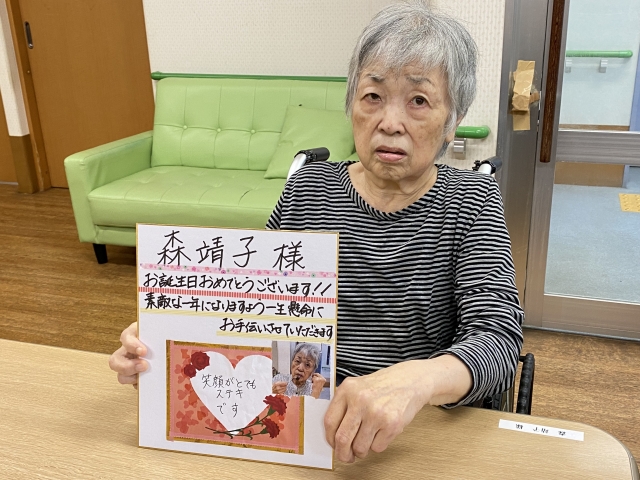 森靖子様
お誕生日おめでとうございます!!
素敵な一年になりますよう一生懸命に
お手伝いさせていただきます
笑顔がとても
ステキ
です